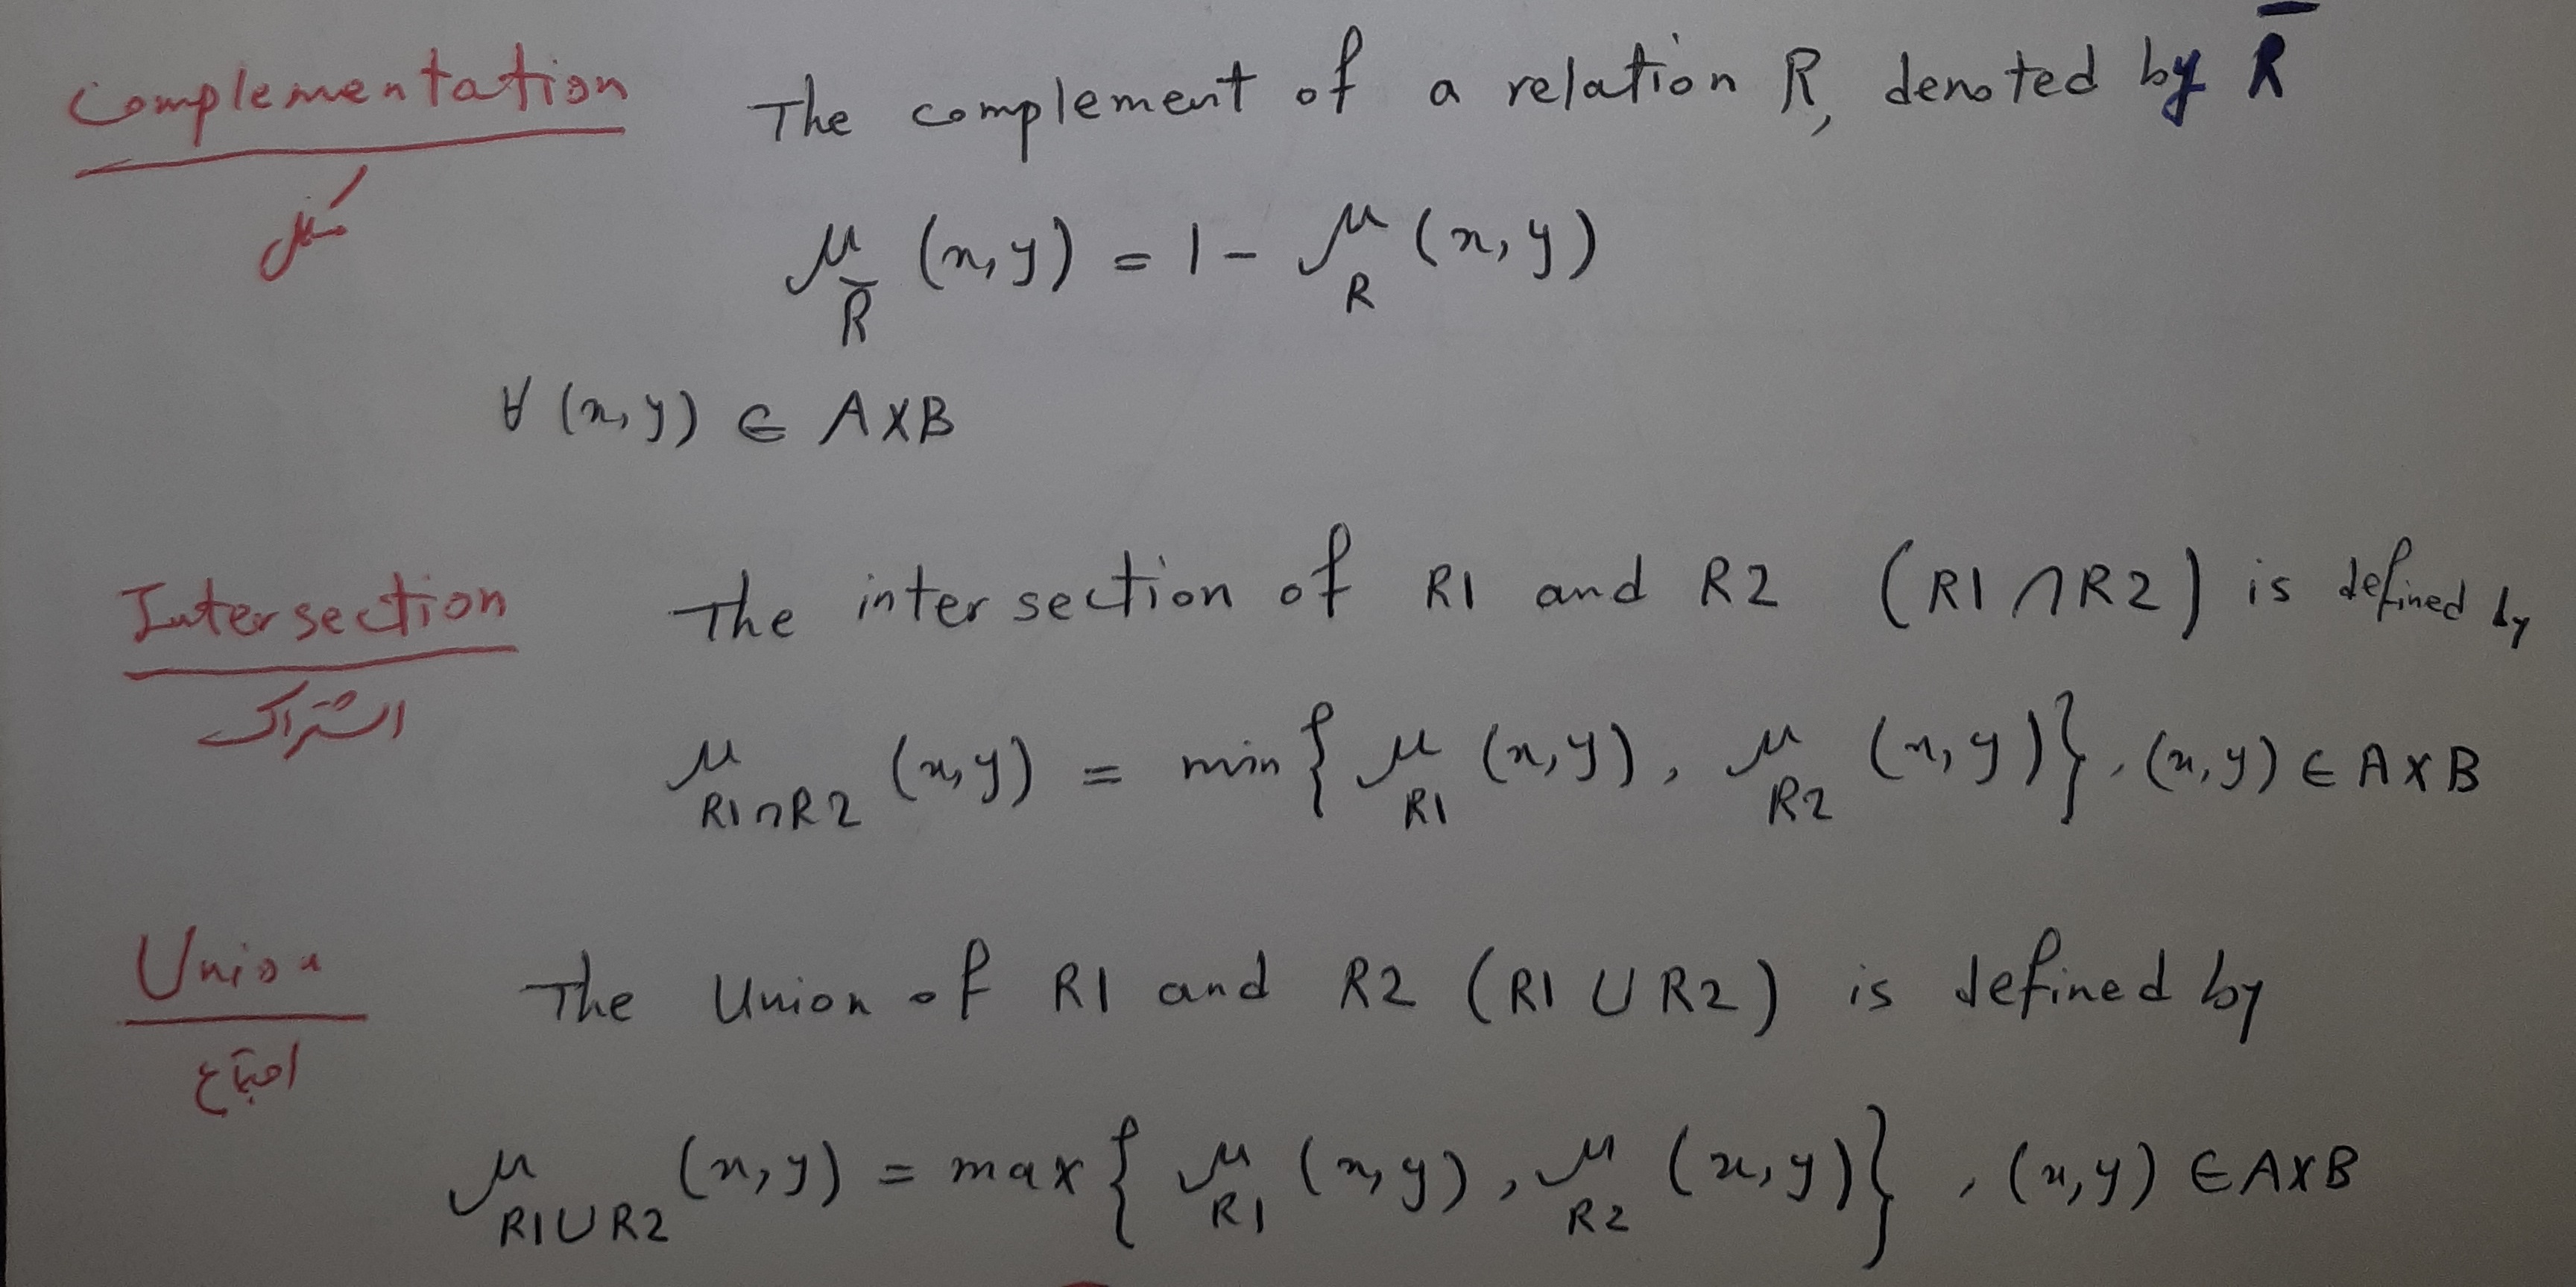 Complementation The complement of a relation R, denoted by R̅
مکمل
μ_R̅ (x,y) = 1 - μ_R (x,y)
∀ (x,y) ∈ A×B
Intersection The intersection of R1 and R2 (R1 ∩ R2) is defined by
اشتراک
μ_R1∩R2 (x,y) = min { μ_R1 (x,y), μ_R2 (x,y) }, (x,y) ∈ A×B
Union The Union of R1 and R2 (R1 ∪ R2) is defined by
اجتماع
μ_R1∪R2 (x,y) = max { μ_R1 (x,y), μ_R2 (x,y) }, (x,y) ∈ A×B